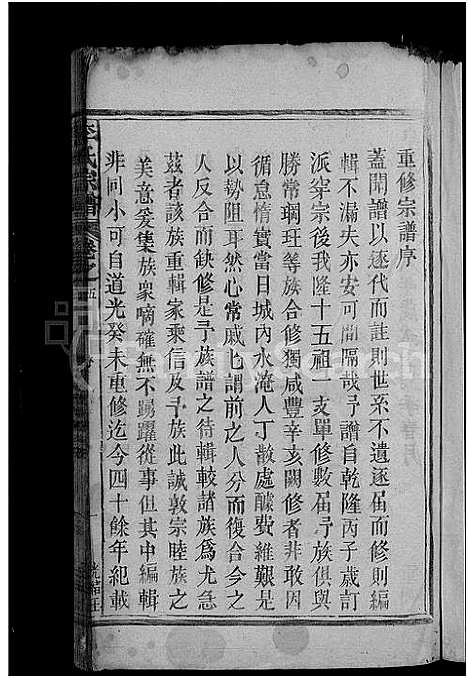 重修宗譜序
蓋聞譜以逐代而註則世系不遺逐届而修則編
輯不漏夫亦安可間隔哉予譜自乾隆丙子歲訂
派穿宗後我隆十五祖一支單修數届予族俱與
勝常瑚珏等族合修獨咸豐辛亥闕修者非敢因
循怠惰實當日城內水淹人丁散處醵費維艱是
以勢阻耳然心常戚匕謂前之人分而復合今之
人反合而缺修是予族譜之待輯較諸族爲尤急
茲者該族重輯家乘信及予族此誠敦宗睦族之
美意爰集族衆啇確無不踢躍從事但其中編輯
非同小可自道光癸未重修迄今四十餘年紀載
氏宗譜
卷之五
序
一